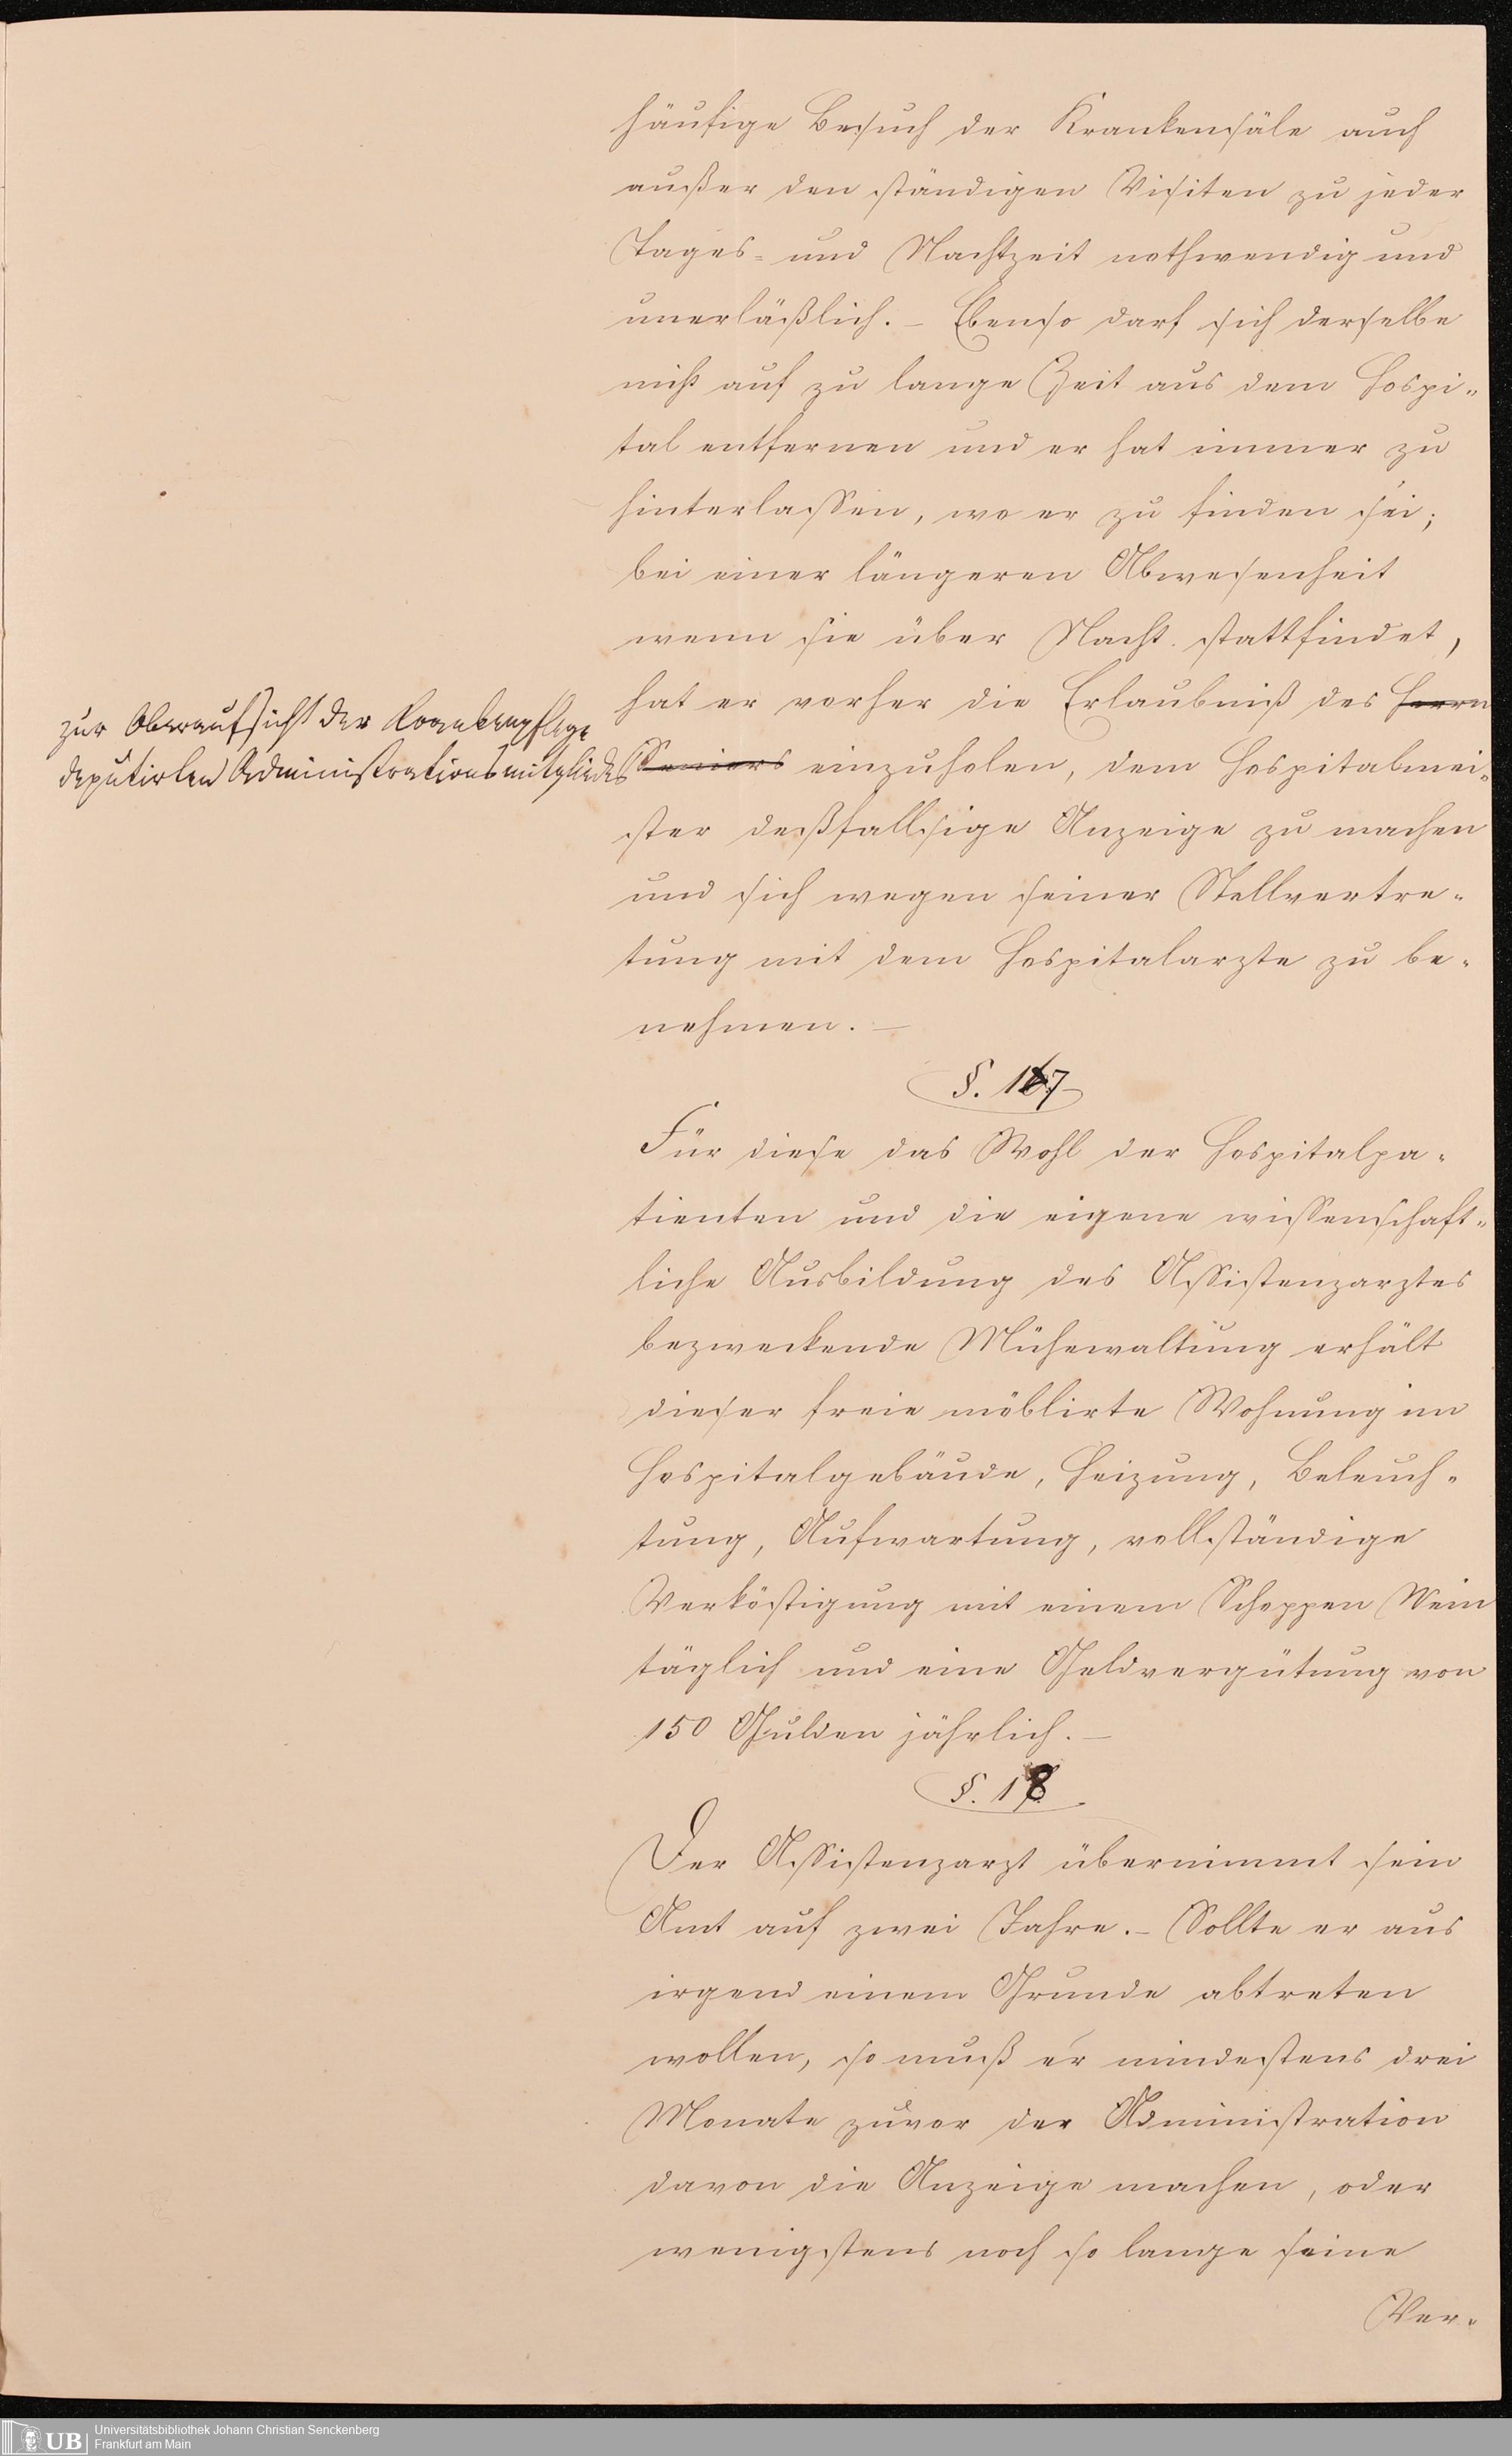 häufige Besuch der Krankensäle auch
außer den ständigen Visiten zu jeder
Tages- und Nachtzeit nothwendig und
unerläßlich. – Ebenso darf sich derselbe
nicht auf zu lange Zeit aus dem Hospi-
tal entfernen und er hat immer zu
hinterlassen, wo er zu finden sei;
bei einer längeren Abwesenheit
wenn sie über Nacht stattfindet,
hat er vorher die Erlaubniß des Herrn
zur Oberaufsicht der Krankenpflege
deputirten Administrationsmitgliedes
Seniors einzuholen, dem Hospitalmei-
ster deßfallsige Anzeige zu machen
und sich wegen seiner Stellvertre-
tung mit dem Hospitalarzte zu be-
nehmen. –
§. 167
Für diese das Wohl der Hospitalpa-
tienten und die eigene wissenschaft-
liche Ausbildung des Assistenzarztes
bezweckende Mühewaltung erhält
dieser freie möblirte Wohnung im
Hospitalgebäude, Heizung, Beleuch-
tung, Aufwartung, vollständige
Verköstigung mit einem Schoppen Wein
täglich und eine Geldvergütung von
150 Gulden jährlich. –
§. 18
Der Assistenzarzt übernimmt sein
Amt auf zwei Jahre. – Sollte er aus
irgend einem Grunde abtreten
wollen, so muß er mindestens drei
Monate zuvor der Administration
davon die Anzeige machen, oder
wenigstens noch so lange seine
Ver-
UB
Universitätsbibliothek Johann Christian Senckenberg
Frankfurt am Main